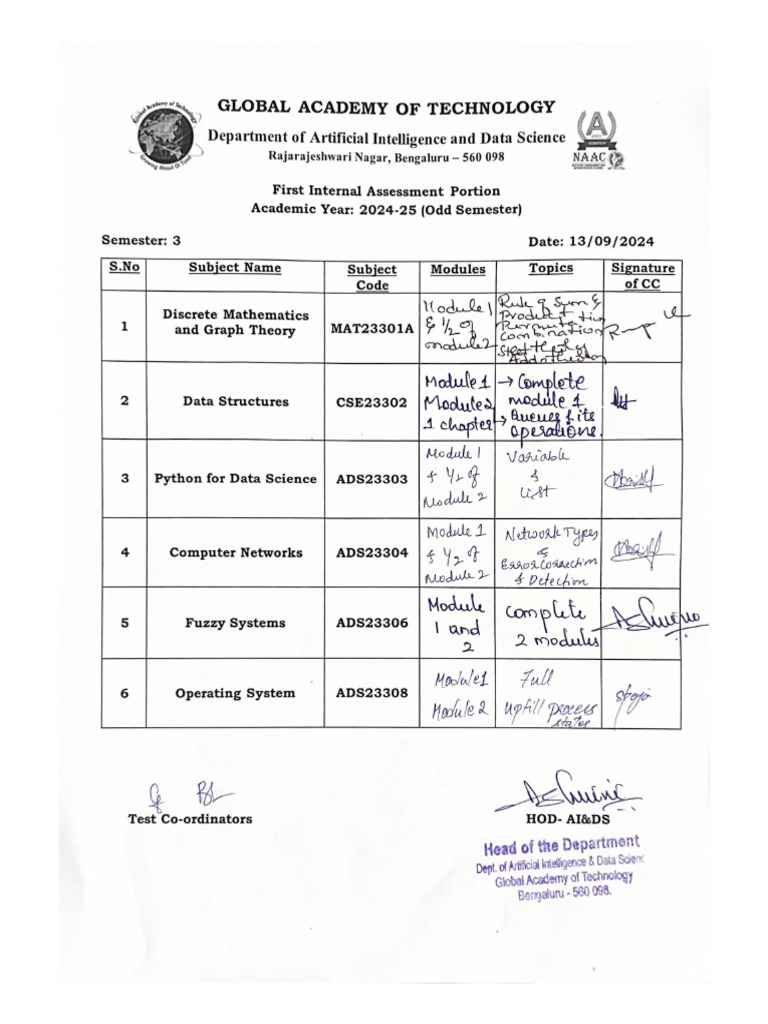 GLOBAL ACADEMY OF TECHNOLOGY
Department of Artificial Intelligence and Data Science
Rajarajeshwari Nagar, Bengaluru – 560 098
Global Academy of Technology
Growing Ahead of Time
A
NAAC
First Internal Assessment Portion
Academic Year: 2024-25 (Odd Semester)
Semester: 3
Date: 13/09/2024
S.No Subject Name Subject Code Modules Topics Signature of CC
1 Discrete Mathematics and Graph Theory MAT23301A
Module 1
& 1/2 of
module 2
Rule of Sum &
Product
Combination
2 Data Structures CSE23302
Module 1
Module 2
1 chapter
→ Complete
module 1
→ Queues & its
operations.
3 Python for Data Science ADS23303
Module 1
& 1/2 of
Module 2
Variable
&
List
4 Computer Networks ADS23304
Module 1
& 1/2 of
Module 2
Network Types
&
Error Correction
& Detection
5 Fuzzy Systems ADS23306
Module
1 and
2
complete
2 modules
6 Operating System ADS23308
Module 1
Module 2
Full
uptill process
states
Test Co-ordinators
HOD- AI&DS
Head of the Department
Dept. of Artificial Intelligence & Data Scienc
Global Academy of Technology
Bengaluru - 560 098.